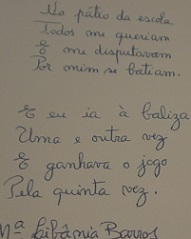 No pátio da escola
Todos me queriam
E me disputavam
Por mim se batiam.
E eu ia à baliza
Uma e outra vez
E ganhava o jogo
Pela quinta vez.
Mª Libânia Barros